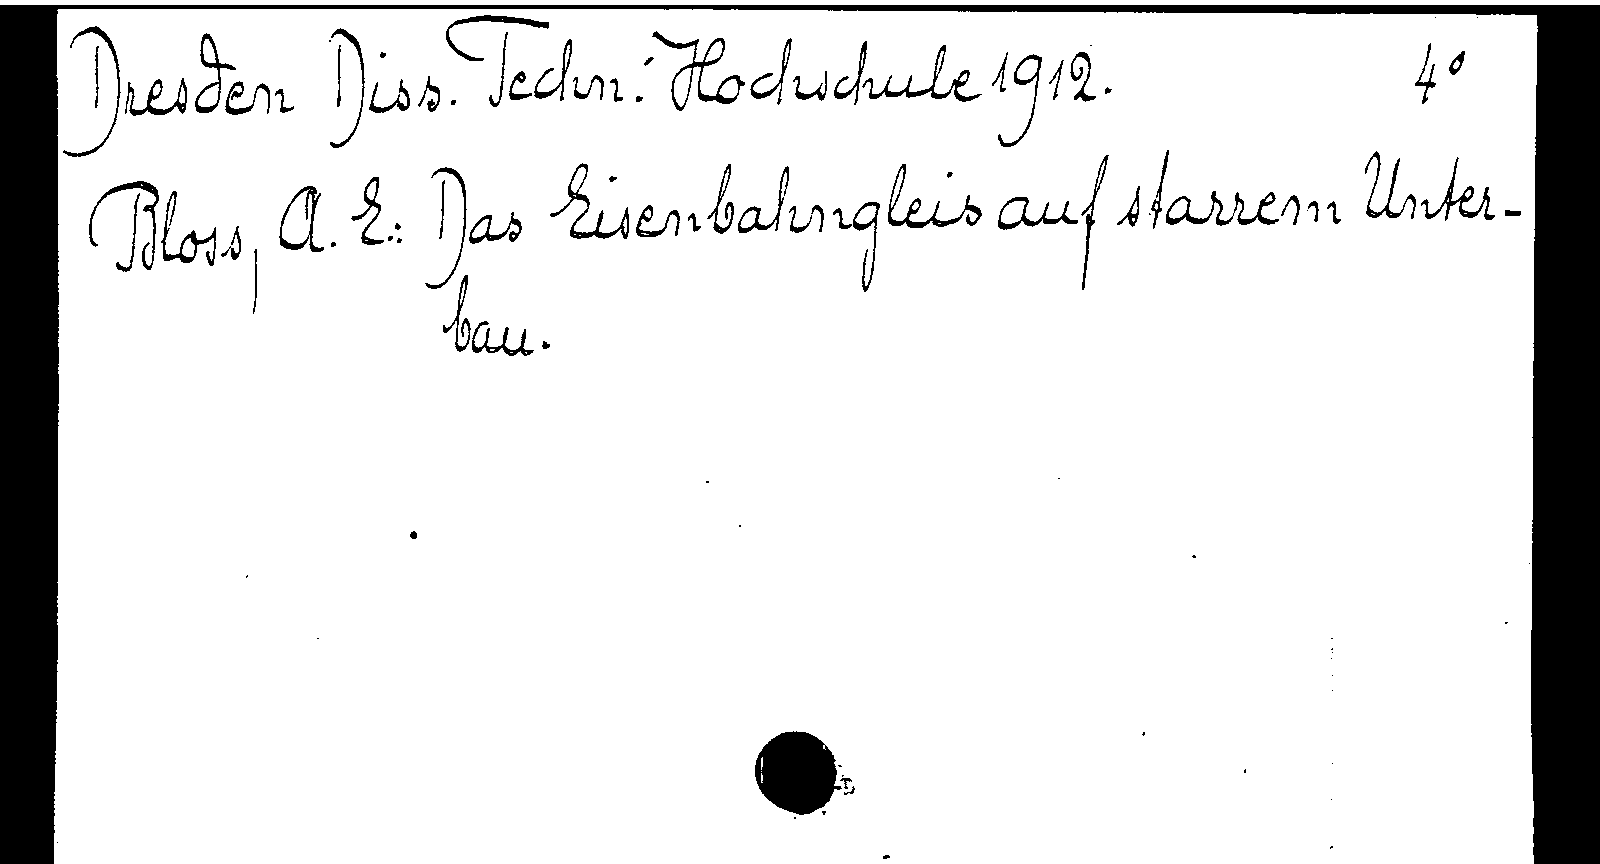 Dresden Diss. Techn. Hochschule 1912. 4°
Bloss, A. E.: Das Eisenbahngleis auf starrem Unter-
bau.